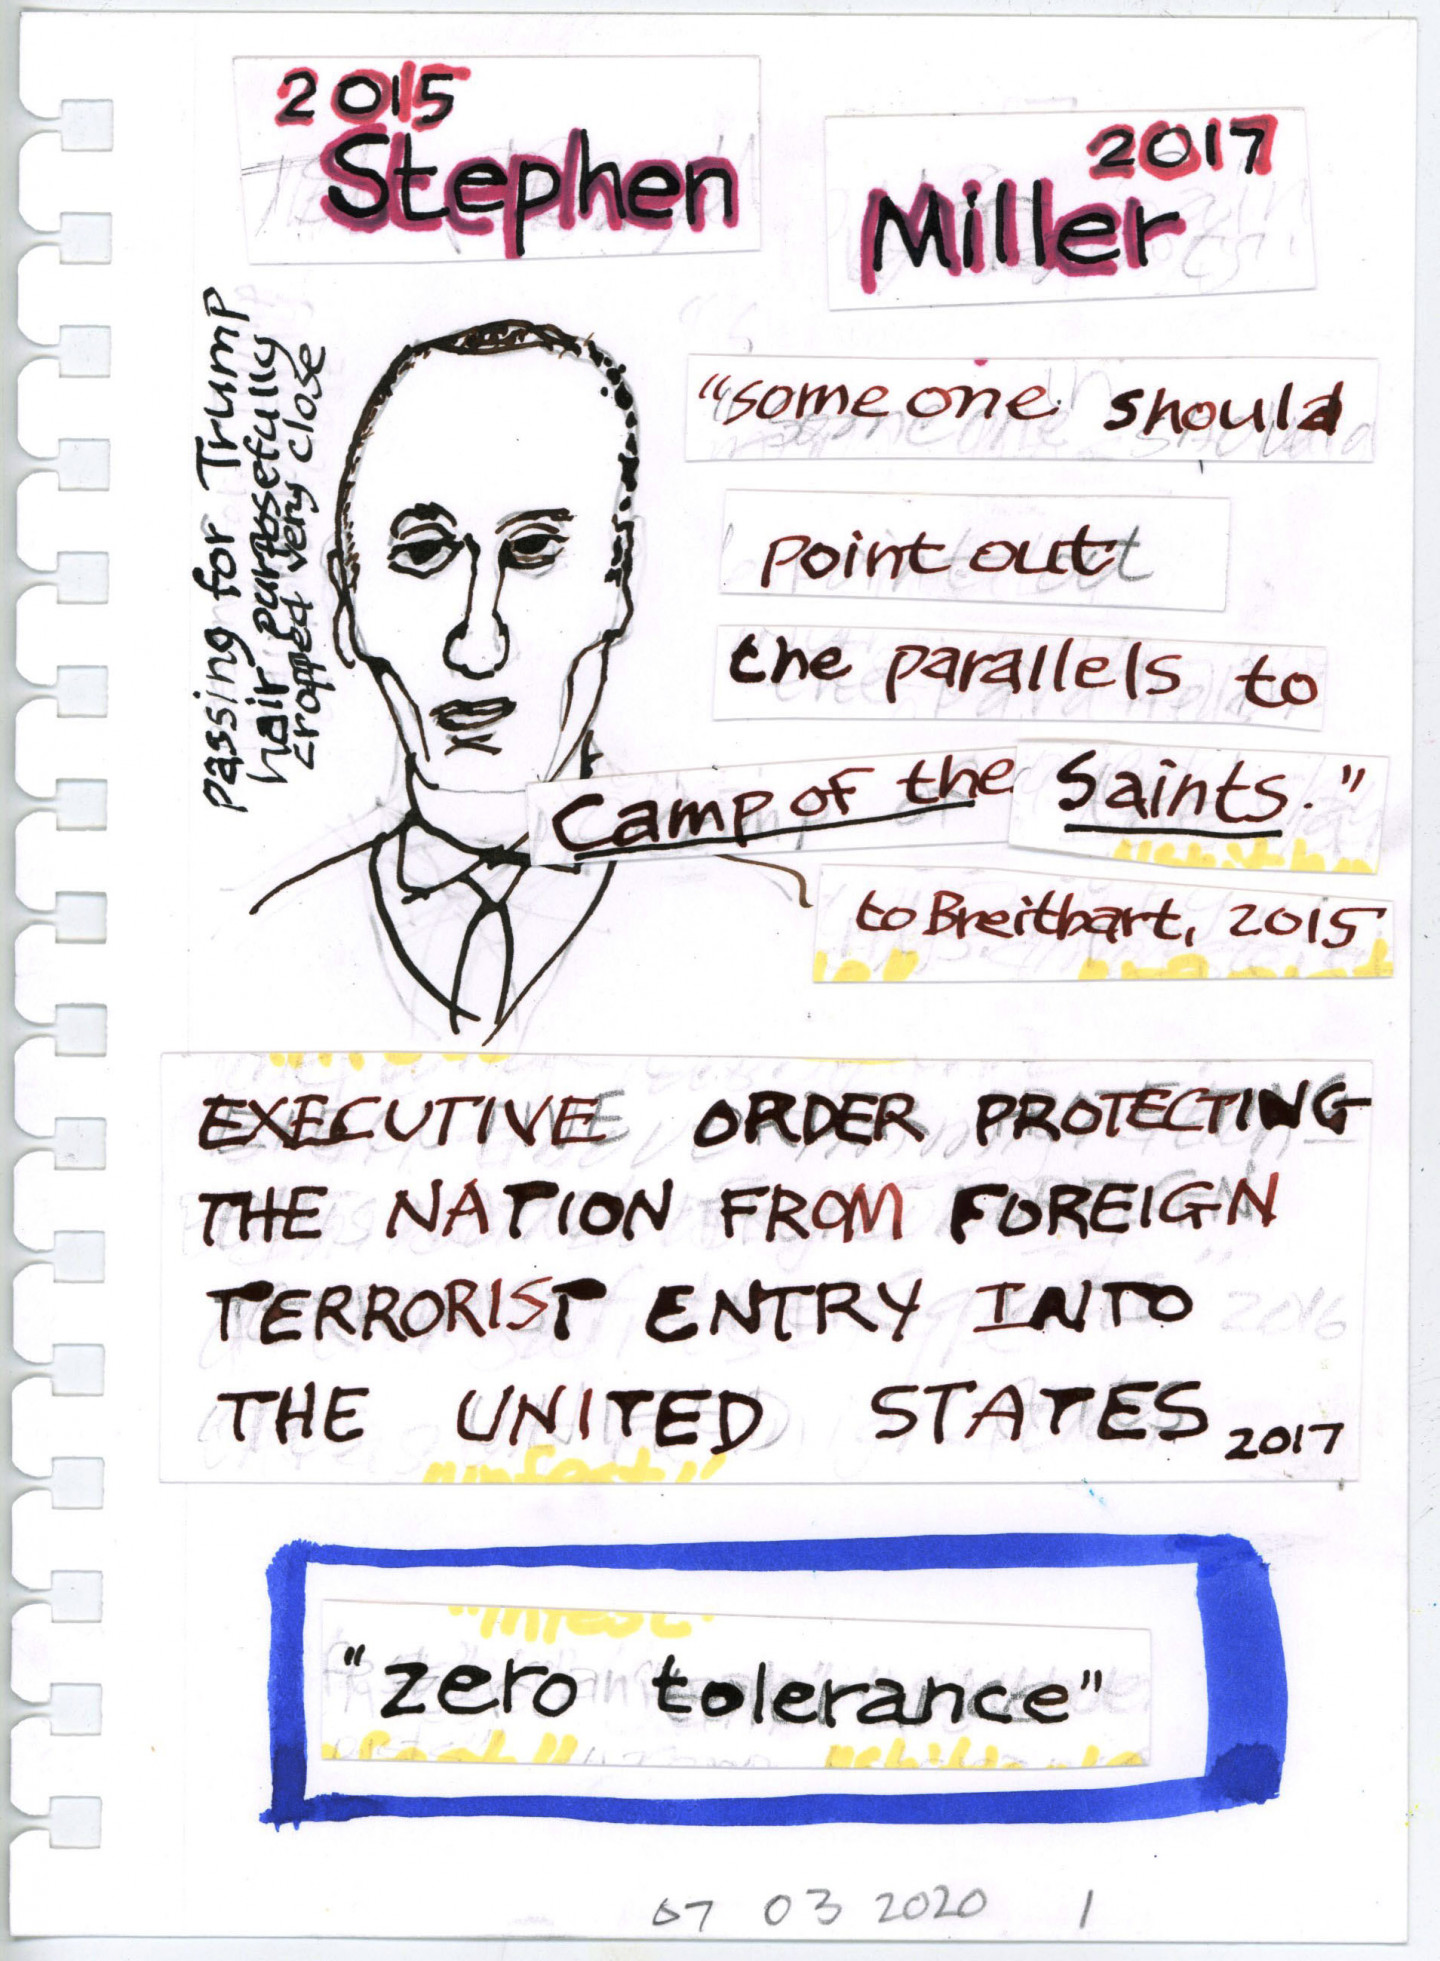 2015
Stephen
2017
Miller
passing for Trump
hair purposefully
cropped very close
"someone should
point out
the parallels to
Camp of the Saints."
to Breitbart, 2015
EXECUTIVE ORDER PROTECTING
THE NATION FROM FOREIGN
TERRORIST ENTRY INTO
THE UNITED STATES 2017
2016
"infest"
"zero tolerance"
07 03 2020 1